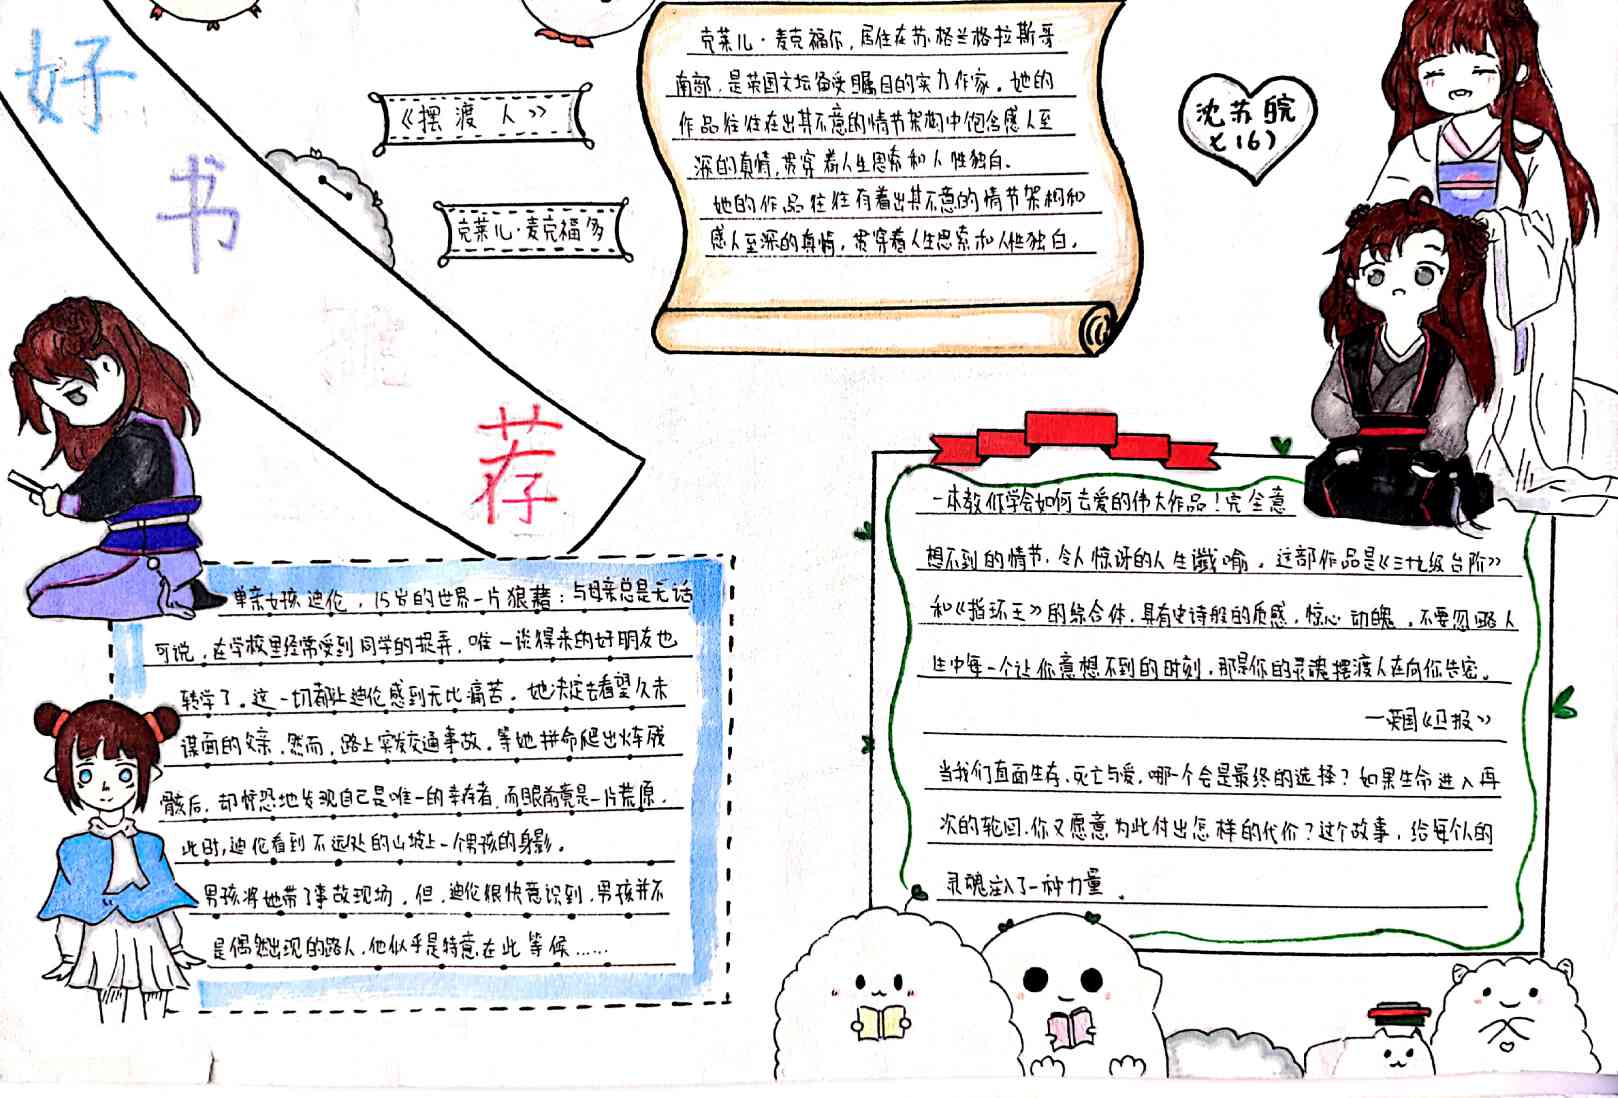 好
书
推
荐
《摆渡人》
克莱儿·麦克福多
克莱儿·麦克福尔，居住在苏格兰格拉斯哥
南部，是英国文坛备受瞩目的实力作家。她的
作品往往在出其不意的情节架构中饱含感人至
深的真情，贯穿着人生思索和人性独白。
她的作品往往有着出其不意的情节架构和
感人至深的真情，贯穿着人生思索和人性独白。
沈苏皖
七(6)
单亲女孩迪伦，15岁的世界一片狼藉：与母亲总是无话
可说，在学校里经常受到同学的捉弄，唯一谈得来的好朋友也
转学了。这一切都让迪伦感到无比痛苦。她决定去看望久未
谋面的父亲，然而，路上突发交通事故。等她拼命爬出火车残
骸后，却惊恐地发现自己是唯一的幸存者，而眼前竟是一片荒原。
此时，迪伦看到不远处的山坡上一个男孩的身影。
男孩将她带了事故现场。但，迪伦很快意识到，男孩并不
是偶然出现的路人，他似乎是特意在此等候……
一本教你学会如何去爱的伟大作品！完全意
想不到的情节，令人惊讶的人生谶喻。这部作品是《三十九级台阶》
和《指环王》的综合体，具有史诗般的质感，惊心动魄，不要忽略人
生中每一个让你意想不到的时刻，那是你的灵魂摆渡人在向你告密。
—英国《卫报》
当我们直面生存、死亡与爱，哪一个会是最终的选择？如果生命进入再
次的轮回，你又愿意为此付出怎样的代价？这个故事，给每个人的
灵魂注入了一种力量。